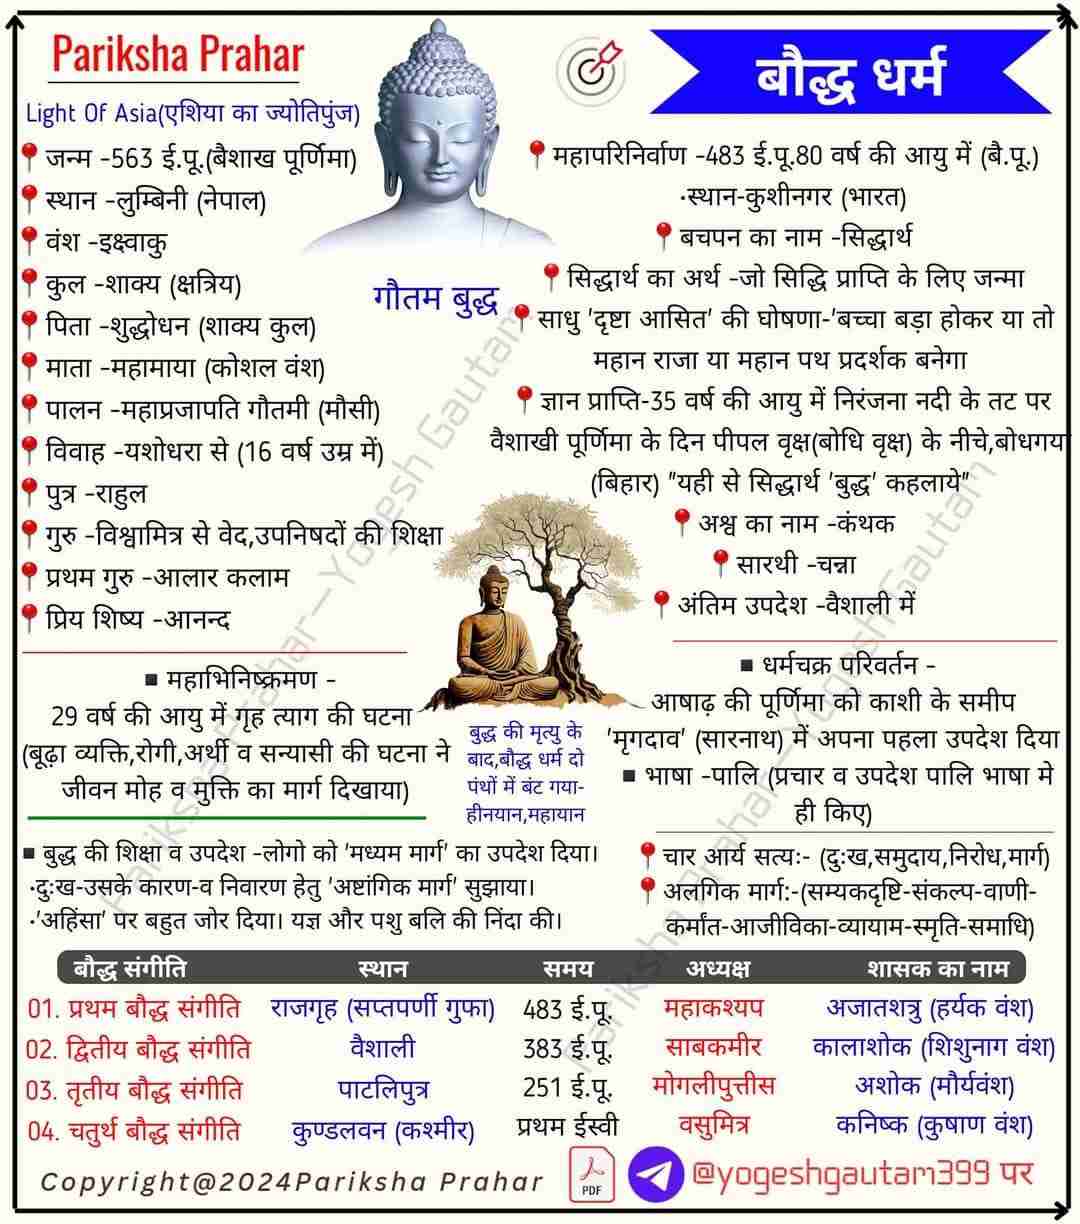 Pariksha Prahar
बौद्ध धर्म
Light Of Asia(एशिया का ज्योतिपुंज)
जन्म -563 ई.पू.(बैशाख पूर्णिमा)
स्थान -लुम्बिनी (नेपाल)
वंश -इक्ष्वाकु
कुल -शाक्य (क्षत्रिय)
पिता -शुद्धोधन (शाक्य कुल)
माता -महामाया (कोशल वंश)
पालन -महाप्रजापति गौतमी (मौसी)
विवाह -यशोधरा से (16 वर्ष उम्र में)
पुत्र -राहुल
गुरु -विश्वामित्र से वेद,उपनिषदों की शिक्षा
प्रथम गुरु -आलार कलाम
प्रिय शिष्य -आनन्द
गौतम बुद्ध
महापरिनिर्वाण -483 ई.पू.80 वर्ष की आयु में (बै.पू.)
·स्थान-कुशीनगर (भारत)
बचपन का नाम -सिद्धार्थ
सिद्धार्थ का अर्थ -जो सिद्धि प्राप्ति के लिए जन्मा
साधु 'दृष्टा आसित' की घोषणा-'बच्चा बड़ा होकर या तो
महान राजा या महान पथ प्रदर्शक बनेगा
ज्ञान प्राप्ति-35 वर्ष की आयु में निरंजना नदी के तट पर
वैशाखी पूर्णिमा के दिन पीपल वृक्ष(बोधि वृक्ष) के नीचे,बोधगया
(बिहार) "यही से सिद्धार्थ 'बुद्ध' कहलाये"
अश्व का नाम -कंथक
सारथी -चन्ना
अंतिम उपदेश -वैशाली में
▪ महाभिनिष्क्रमण -
29 वर्ष की आयु में गृह त्याग की घटना
(बूढ़ा व्यक्ति,रोगी,अर्थी व सन्यासी की घटना ने
जीवन मोह व मुक्ति का मार्ग दिखाया)
बुद्ध की मृत्यु के
बाद,बौद्ध धर्म दो
पंथों में बंट गया-
हीनयान,महायान
▪ धर्मचक्र परिवर्तन -
आषाढ़ की पूर्णिमा को काशी के समीप
'मृगदाव' (सारनाथ) में अपना पहला उपदेश दिया
▪ भाषा -पालि (प्रचार व उपदेश पालि भाषा मे
ही किए)
▪ बुद्ध की शिक्षा व उपदेश -लोगो को 'मध्यम मार्ग' का उपदेश दिया।
·दुःख-उसके कारण-व निवारण हेतु 'अष्टांगिक मार्ग' सुझाया।
·'अहिंसा' पर बहुत जोर दिया। यज्ञ और पशु बलि की निंदा की।
चार आर्य सत्यः- (दुःख,समुदाय,निरोध,मार्ग)
अलगिक मार्ग:-(सम्यकदृष्टि-संकल्प-वाणी-
कर्मांत-आजीविका-व्यायाम-स्मृति-समाधि)
बौद्ध संगीति स्थान समय अध्यक्ष शासक का नाम
01. प्रथम बौद्ध संगीति राजगृह (सप्तपर्णी गुफा) 483 ई.पू. महाकश्यप अजातशत्रु (हर्यक वंश)
02. द्वितीय बौद्ध संगीति वैशाली 383 ई.पू. साबकमीर कालाशोक (शिशुनाग वंश)
03. तृतीय बौद्ध संगीति पाटलिपुत्र 251 ई.पू. मोगलीपुत्तीस अशोक (मौर्यवंश)
04. चतुर्थ बौद्ध संगीति कुण्डलवन (कश्मीर) प्रथम ईस्वी वसुमित्र कनिष्क (कुषाण वंश)
Copyright@2024Pariksha Prahar
PDF
@yogeshgautam399 पर
Pariksha Prahar—Yogesh Gautam
Pariksha Prahar—Yogesh Gautam